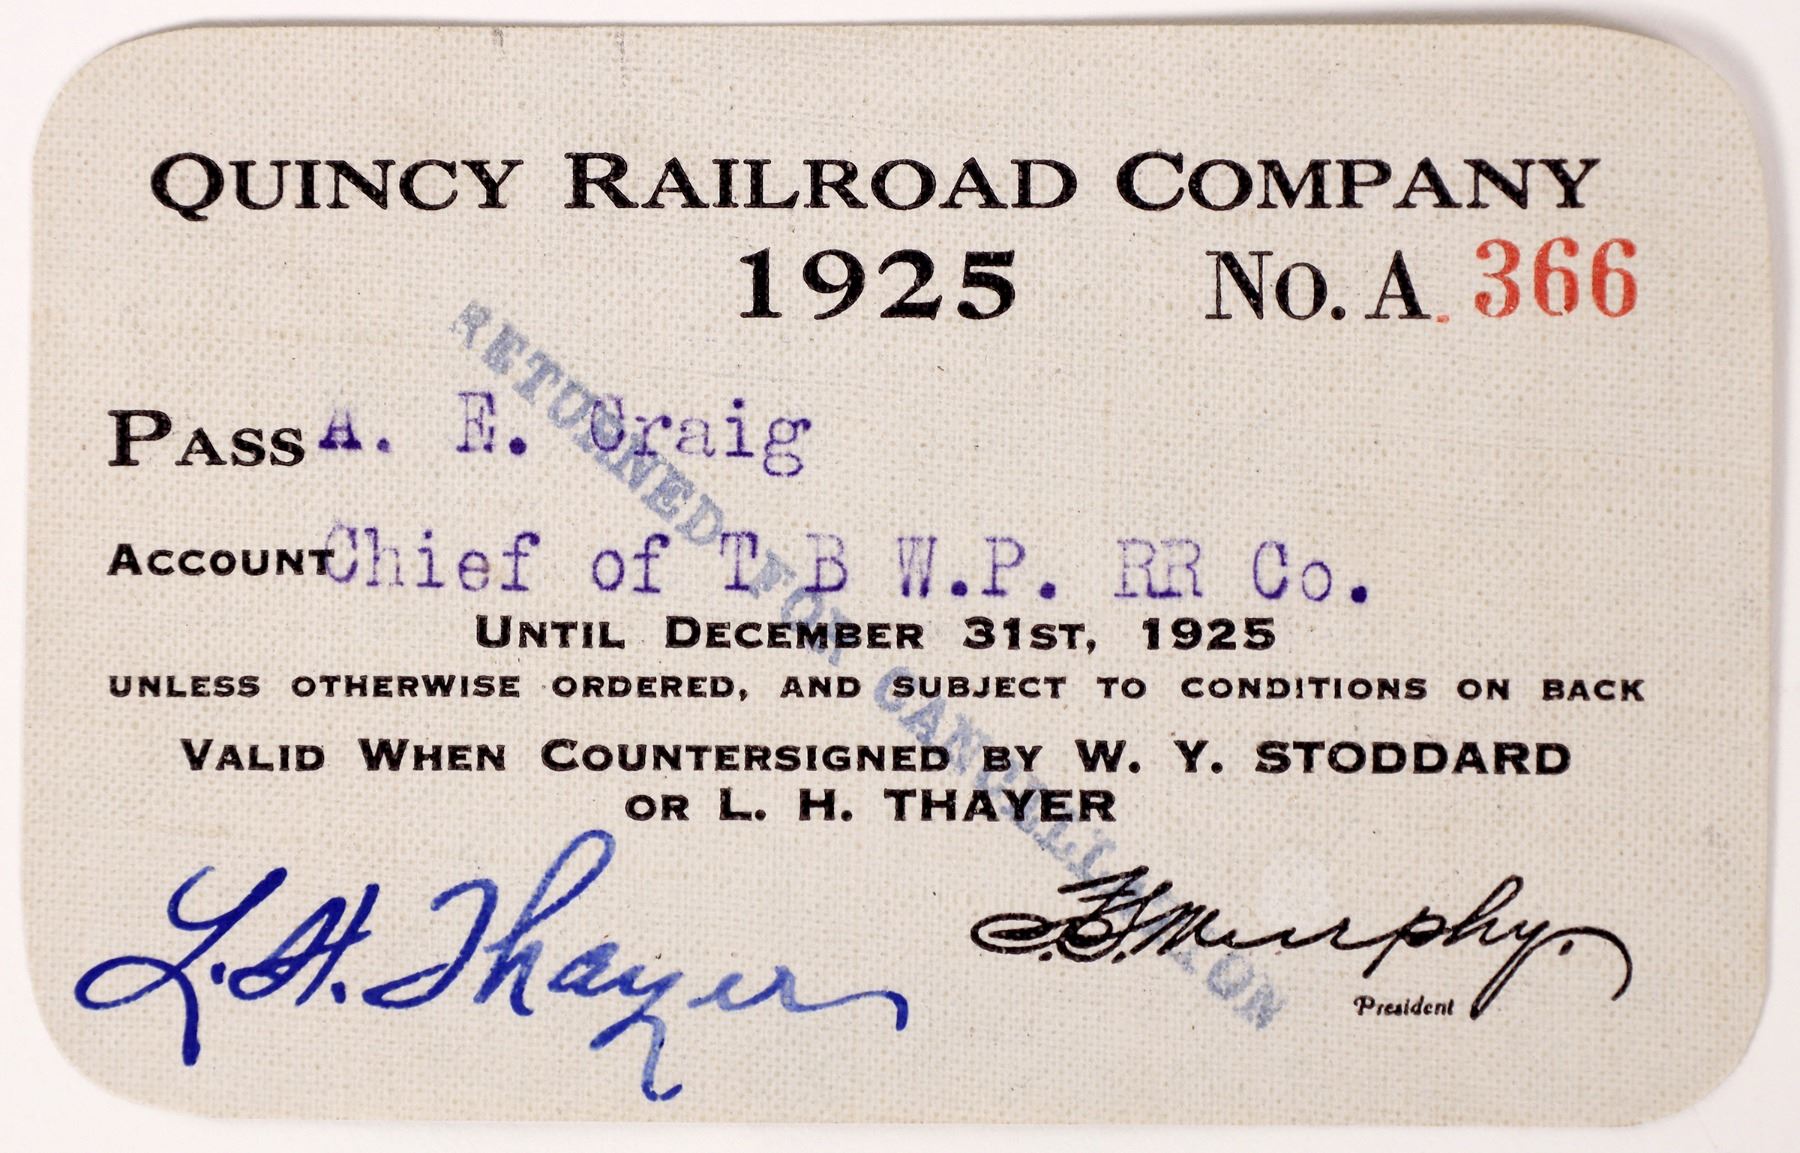 QUINCY RAILROAD COMPANY
1925 No. A. 366
PASS A. E. Craig
ACCOUNT Chief of T B W.P. RR Co.
UNTIL DECEMBER 31ST, 1925
UNLESS OTHERWISE ORDERED, AND SUBJECT TO CONDITIONS ON BACK
VALID WHEN COUNTERSIGNED BY W. Y. STODDARD
OR L. H. THAYER
RETURNED FOR CANCELLATION
L. H. Thayer
Murphy.
President